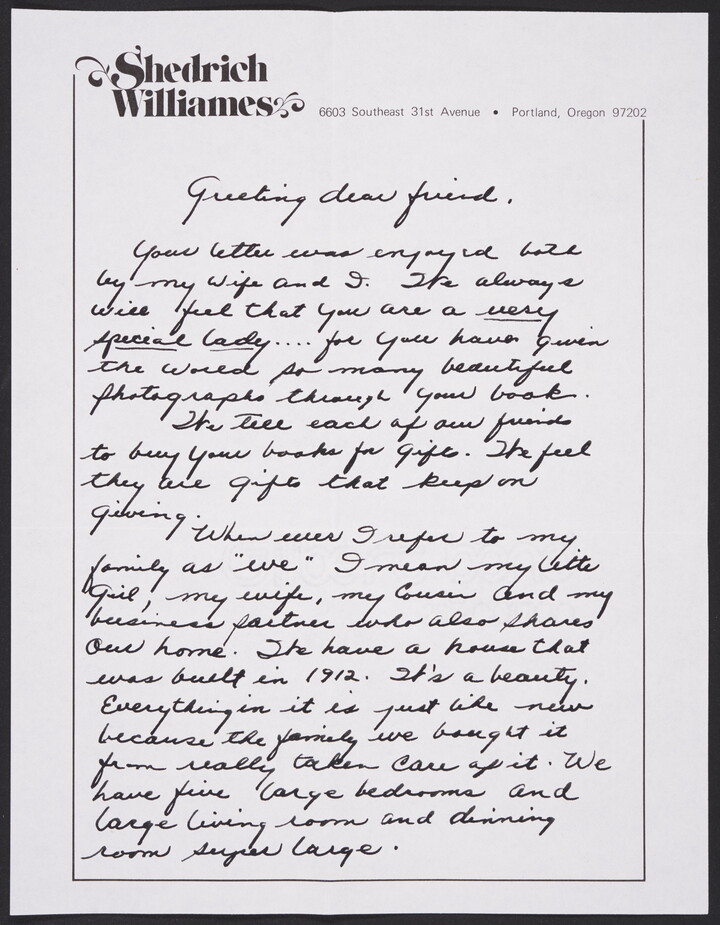 Shedrich
Williames
6603 Southeast 31st Avenue • Portland, Oregon 97202
Greeting dear friend,
Your letter was enjoyed both
by my wife and I. We always
will feel that you are a very
special lady.... for you have given
the world so many beautiful
photographs through your book.
We tell each of our friends
to buy your books for gifts. We feel
they are gifts that keep on
giving.
When ever I refer to my
family as "we" I mean my little
Girl, my wife, my Cousin and my
business partner who also shares
our home. We have a house that
was built in 1912. It's a beauty.
Everything in it is just like new
because the family we bought it
from really taken care of it. We
have five large bedrooms and
large living room and dinning
room super large.